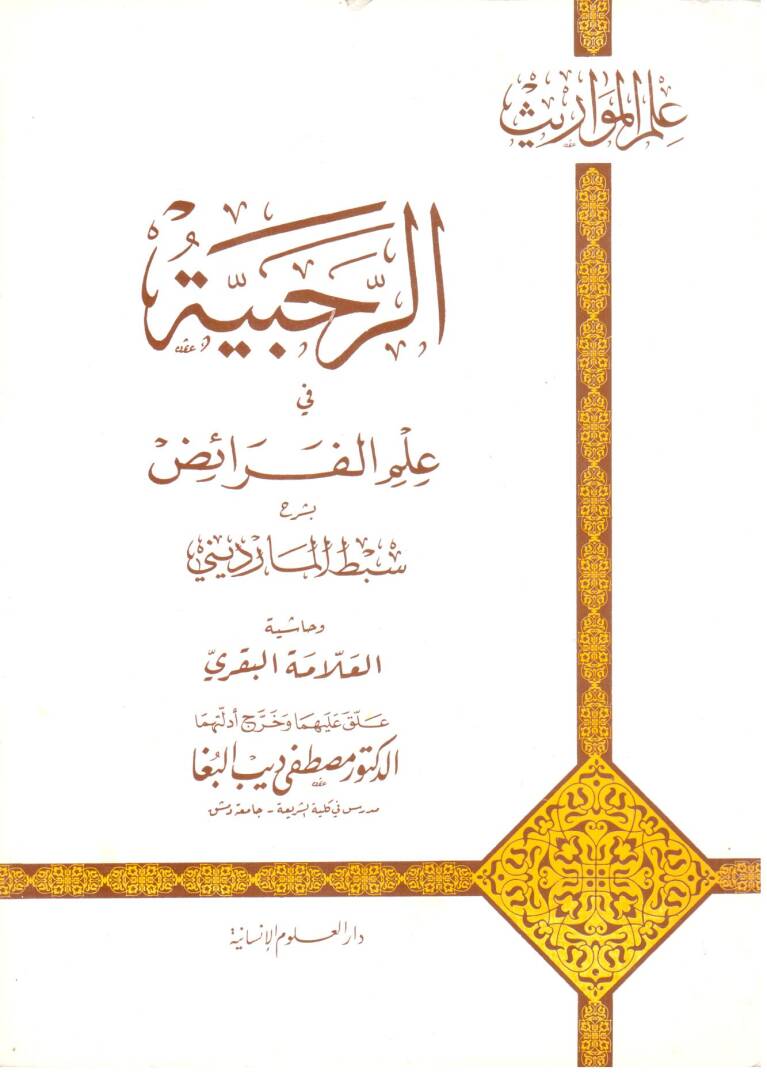 علم المواريث
الرَّحَبيّةُ
في
عِلمِ الفَرَائِضْ
بشرح
سبط المارديني
وحاشية
العَلّامَة البقريّ
عَلّقَ عَلَيهما وَخَرَّج أدلّتهما
الدكتور مصطفى ديب البُغا
مدرس في كلية الشريعة - جامعة دمشق
دار العلوم الإنسانية